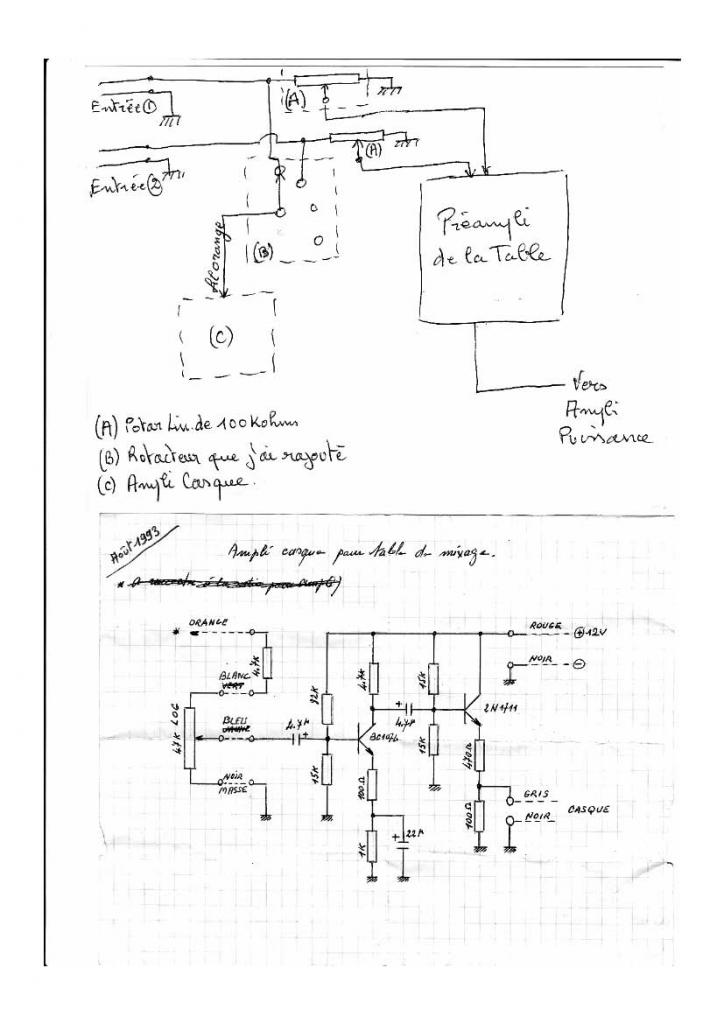 Entrée ①
(A)
(A)
Entrée ②
Préampli
de la Table
(B)
At orange
(C)
Vers
Ampli
Puissance
(A) Potar Lin. de 100 Kohms
(B) Rotacteur que j'ai rajouté
(C) Ampli Casque.
Août 1993
Ampli casque pour table de mixage.
* ORANGE
4.7K
BLANC
VERT
BLEU
47K LOG
NOIR
MASSE
4.7µ
+
82K
15K
4.7K
BC107B
100Ω
1K
+ 22µ
+
4.7µ
15K
15K
2N1711
470Ω
100Ω
ROUGE
+ 12V
NOIR
-
GRIS
NOIR
CASQUE